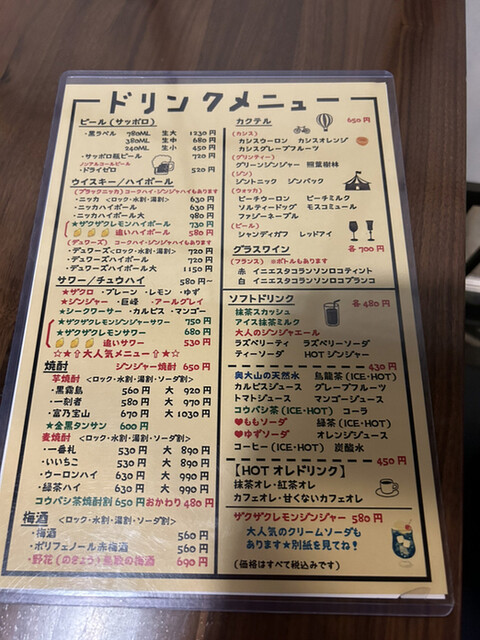 ドリンクメニュー
ビール (サッポロ)
・黒ラベル 780ML 生大 1230円
380ML 生中 680円
240ML 生小 450円
・サッポロ瓶ビール 720円
ノンアルコールビール
・ドライゼロ 520円
ウイスキー/ハイボール
(ブラックニッカ) コーク・ハイ・ジンジャーハイもあります
・ニッカ <ロック・水割・湯割> 630円
・ニッカハイボール 630円
・ニッカハイボール大 980円
★ザクザクレモンハイボール 730円
追いハイボール 580円
(デュワーズ) コークハイ・ジンジャハイもあります
・デュワーズ<ロック・水割・湯割> 720円
・デュワーズハイボール 720円
・デュワーズハイボール大 1150円
サワー/チュウハイ 580円~
★ザクロ ・プレーン ・レモン ・ゆず
★ジンジャー ・巨峰 ・アールグレイ
★シークワーサー ・カルピス ・マンゴー
★ザクザクレモンジンジャーサワー 750円
★ザクザクレモンサワー 680円
追いサワー 530円
☆★☆大人気メニュー☆★☆
焼酎 ジンジャー焼酎 650円
芋焼酎 <ロック・水割・湯割・ソーダ割>
・黒霧島 560円 大 920円
・一刻者 580円 大 970円
・富乃宝山 670円 大 1030円
★金黒タンサン 600円
麦焼酎 <ロック・水割・湯割・ソーダ割>
・一番札 530円 大 890円
・いいちこ 530円 大 890円
・ウーロンハイ 530円 大 990円
・緑茶ハイ 530円 大 990円
コウバシ茶焼酎割 650円 おかわり 480円
梅酒 <ロック・水割・湯割・ソーダ割>
・梅酒 560円
・ポリフェノール赤梅酒 560円
・野花 (のきょう) 梅酒 690円
カクテル 650円
(カシス)
カシスウーロン カシスオレンジ
カシスグレープフルーツ
(グリンティー)
グリーンジンジャー 照葉樹林
(ジン)
ジントニック ジンバック
(ウォッカ)
ピーチウーロン ピーチミルク
ソルティードッグ モスコミュール
ファジーネーブル
(ビール)
シャンディガフ レッドアイ
グラスワイン 各700円
(フランス) ※ボトルもあります
赤 イニエスタコラソンソロコティント
白 イニエスタコラソンソロコブランコ
ソフトドリンク 各480円
抹茶スカッシュ
アイス抹茶ミルク
大人のジンジャエール
ラズベリティ ラズベリーソーダ
ティーソーダ HOTジンジャー
430円
奥大山の天然水 烏龍茶(ICE・HOT)
カルピスジュース グレープフルーツ
トマトジュース マンゴージュース
コウバシ茶(ICE・HOT) コーラ
♥ももソーダ 緑茶(ICE・HOT)
♥ゆずソーダ オレンジジュース
コーヒー(ICE・HOT) 炭酸水
450円
【HOTオレドリンク】
抹茶オレ・紅茶オレ
カフェオレ・甘くないカフェオレ
ザクザクレモンジンジャー 580円
大人気のクリームソーダも
あります★別紙を見てね!
(価格はすべて税込みです)